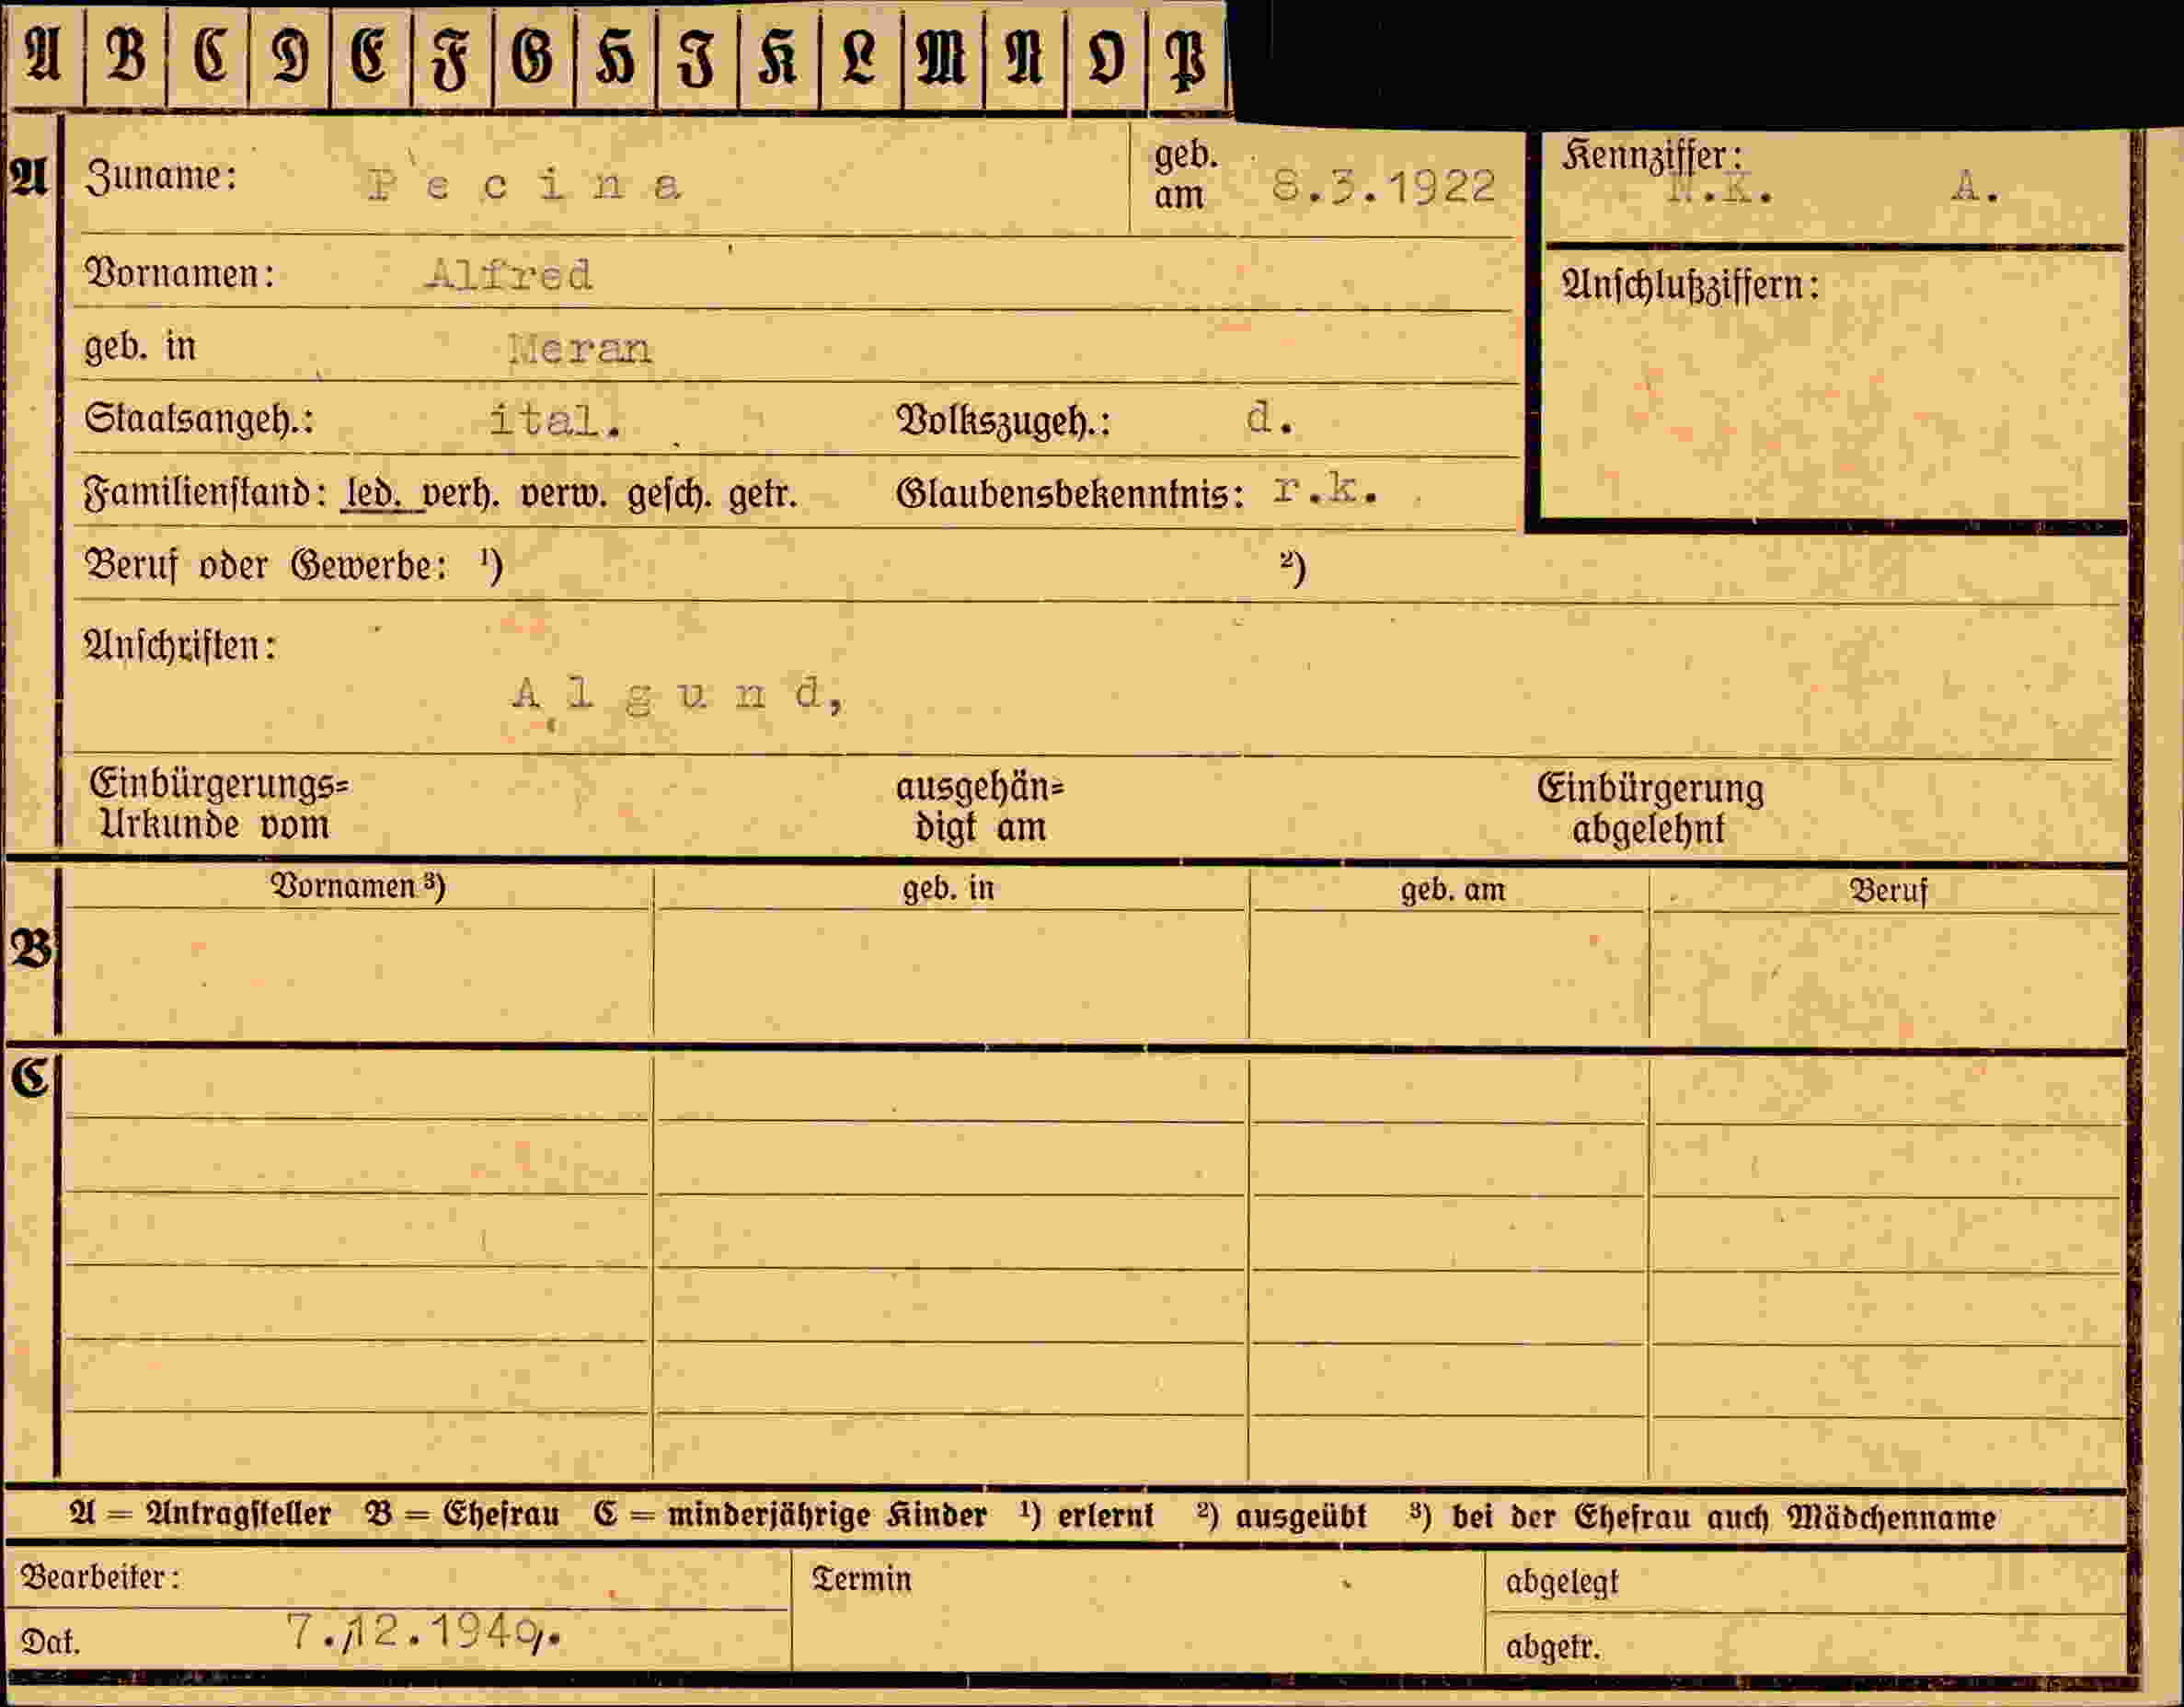 A B C D E F G H I K L M N O P
A Zuname: Pecina geb. am 8.3.1922 Kennziffer: A.
Vornamen: Alfred Anschlußziffern:
geb. in Meran
Staatsangeh.: ital. Volkszugeh.: d.
Familienstand: led. verh. verw. gesch. getr. Glaubensbekenntnis: r.k.
Beruf oder Gewerbe: ¹) ²)
Anschriften:
Algund,
Einbürgerungs= ausgehän= Einbürgerung
Urkunde vom digt am abgelehnt
B Vornamen ³) geb. in geb. am Beruf
C
A = Antragsteller B = Ehefrau C = minderjährige Kinder ¹) erlernt ²) ausgeübt ³) bei der Ehefrau auch Mädchenname
Bearbeiter: Termin abgelegt
Dat. 7.12.1940. abgetr.